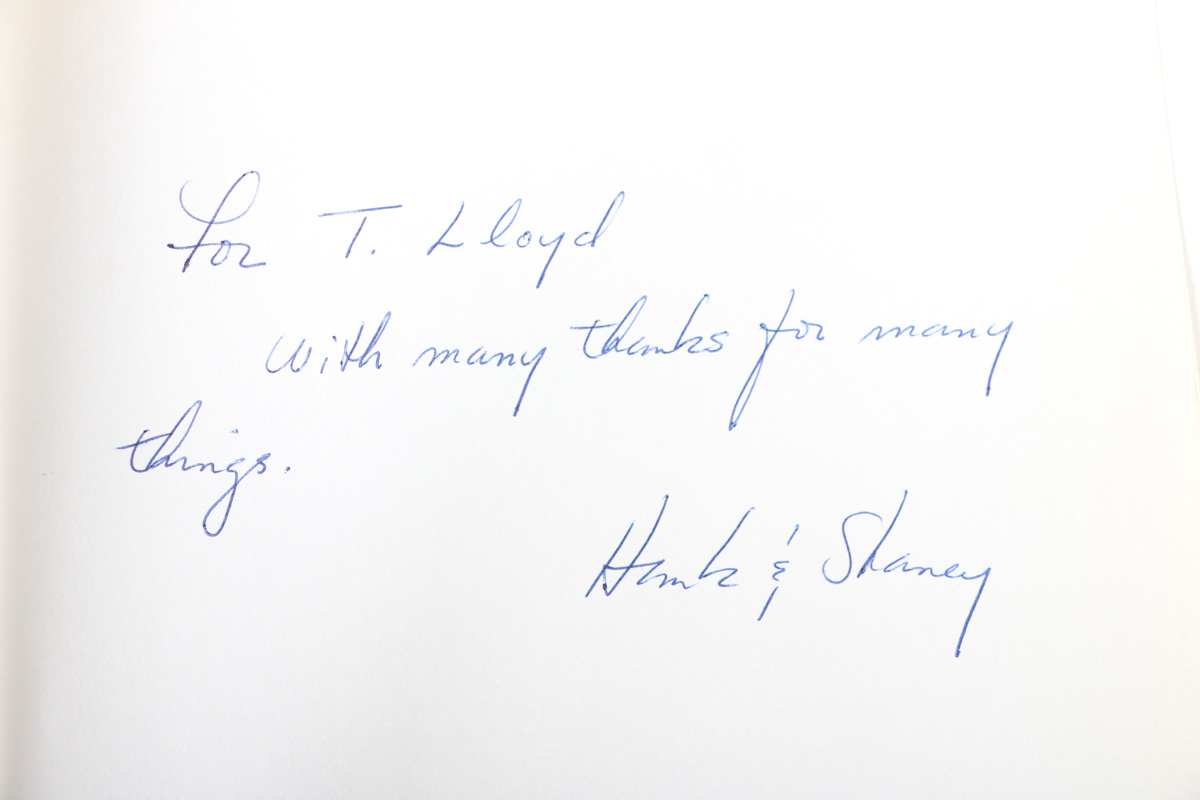 For T. Lloyd
with many thanks for many
things.
Hank & Shaney